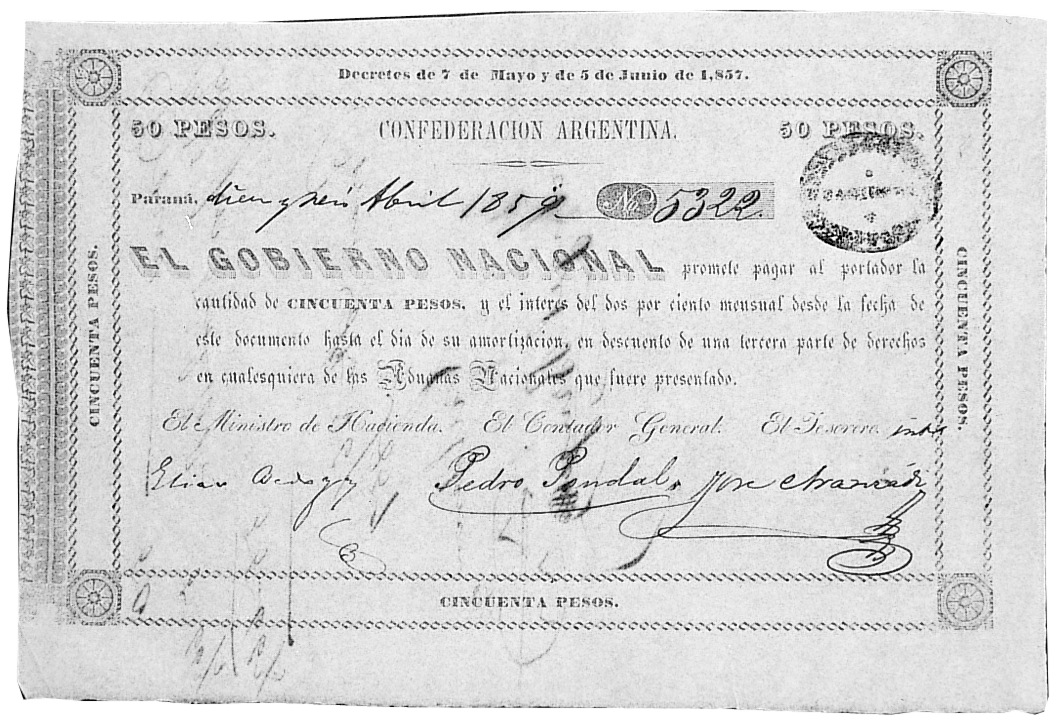 Decretos de 7 de Mayo y de 5 de Junio de 1,857.
50 PESOS. CONFEDERACION ARGENTINA. 50 PESOS.
Paraná, diez y seis Abril 1859 No 5322.
EL GOBIERNO NACIONAL promete pagar al portador la
cantidad de CINCUENTA PESOS, y el interes del dos por ciento mensual desde la fecha de
este documento hasta el dia de su amortizacion, en descuento de una tercera parte de derechos
en cualesquiera de las Aduanas Nacionales que fuere presentado.
El Ministro de Hacienda. El Contador General. El Tesorero
Elias Pedro Pondal Jose
CINCUENTA PESOS.
CINCUENTA PESOS.
CINCUENTA PESOS.